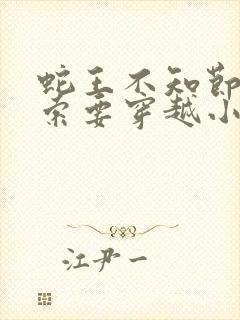 蛇王不知節
索要穿越小
江尹一